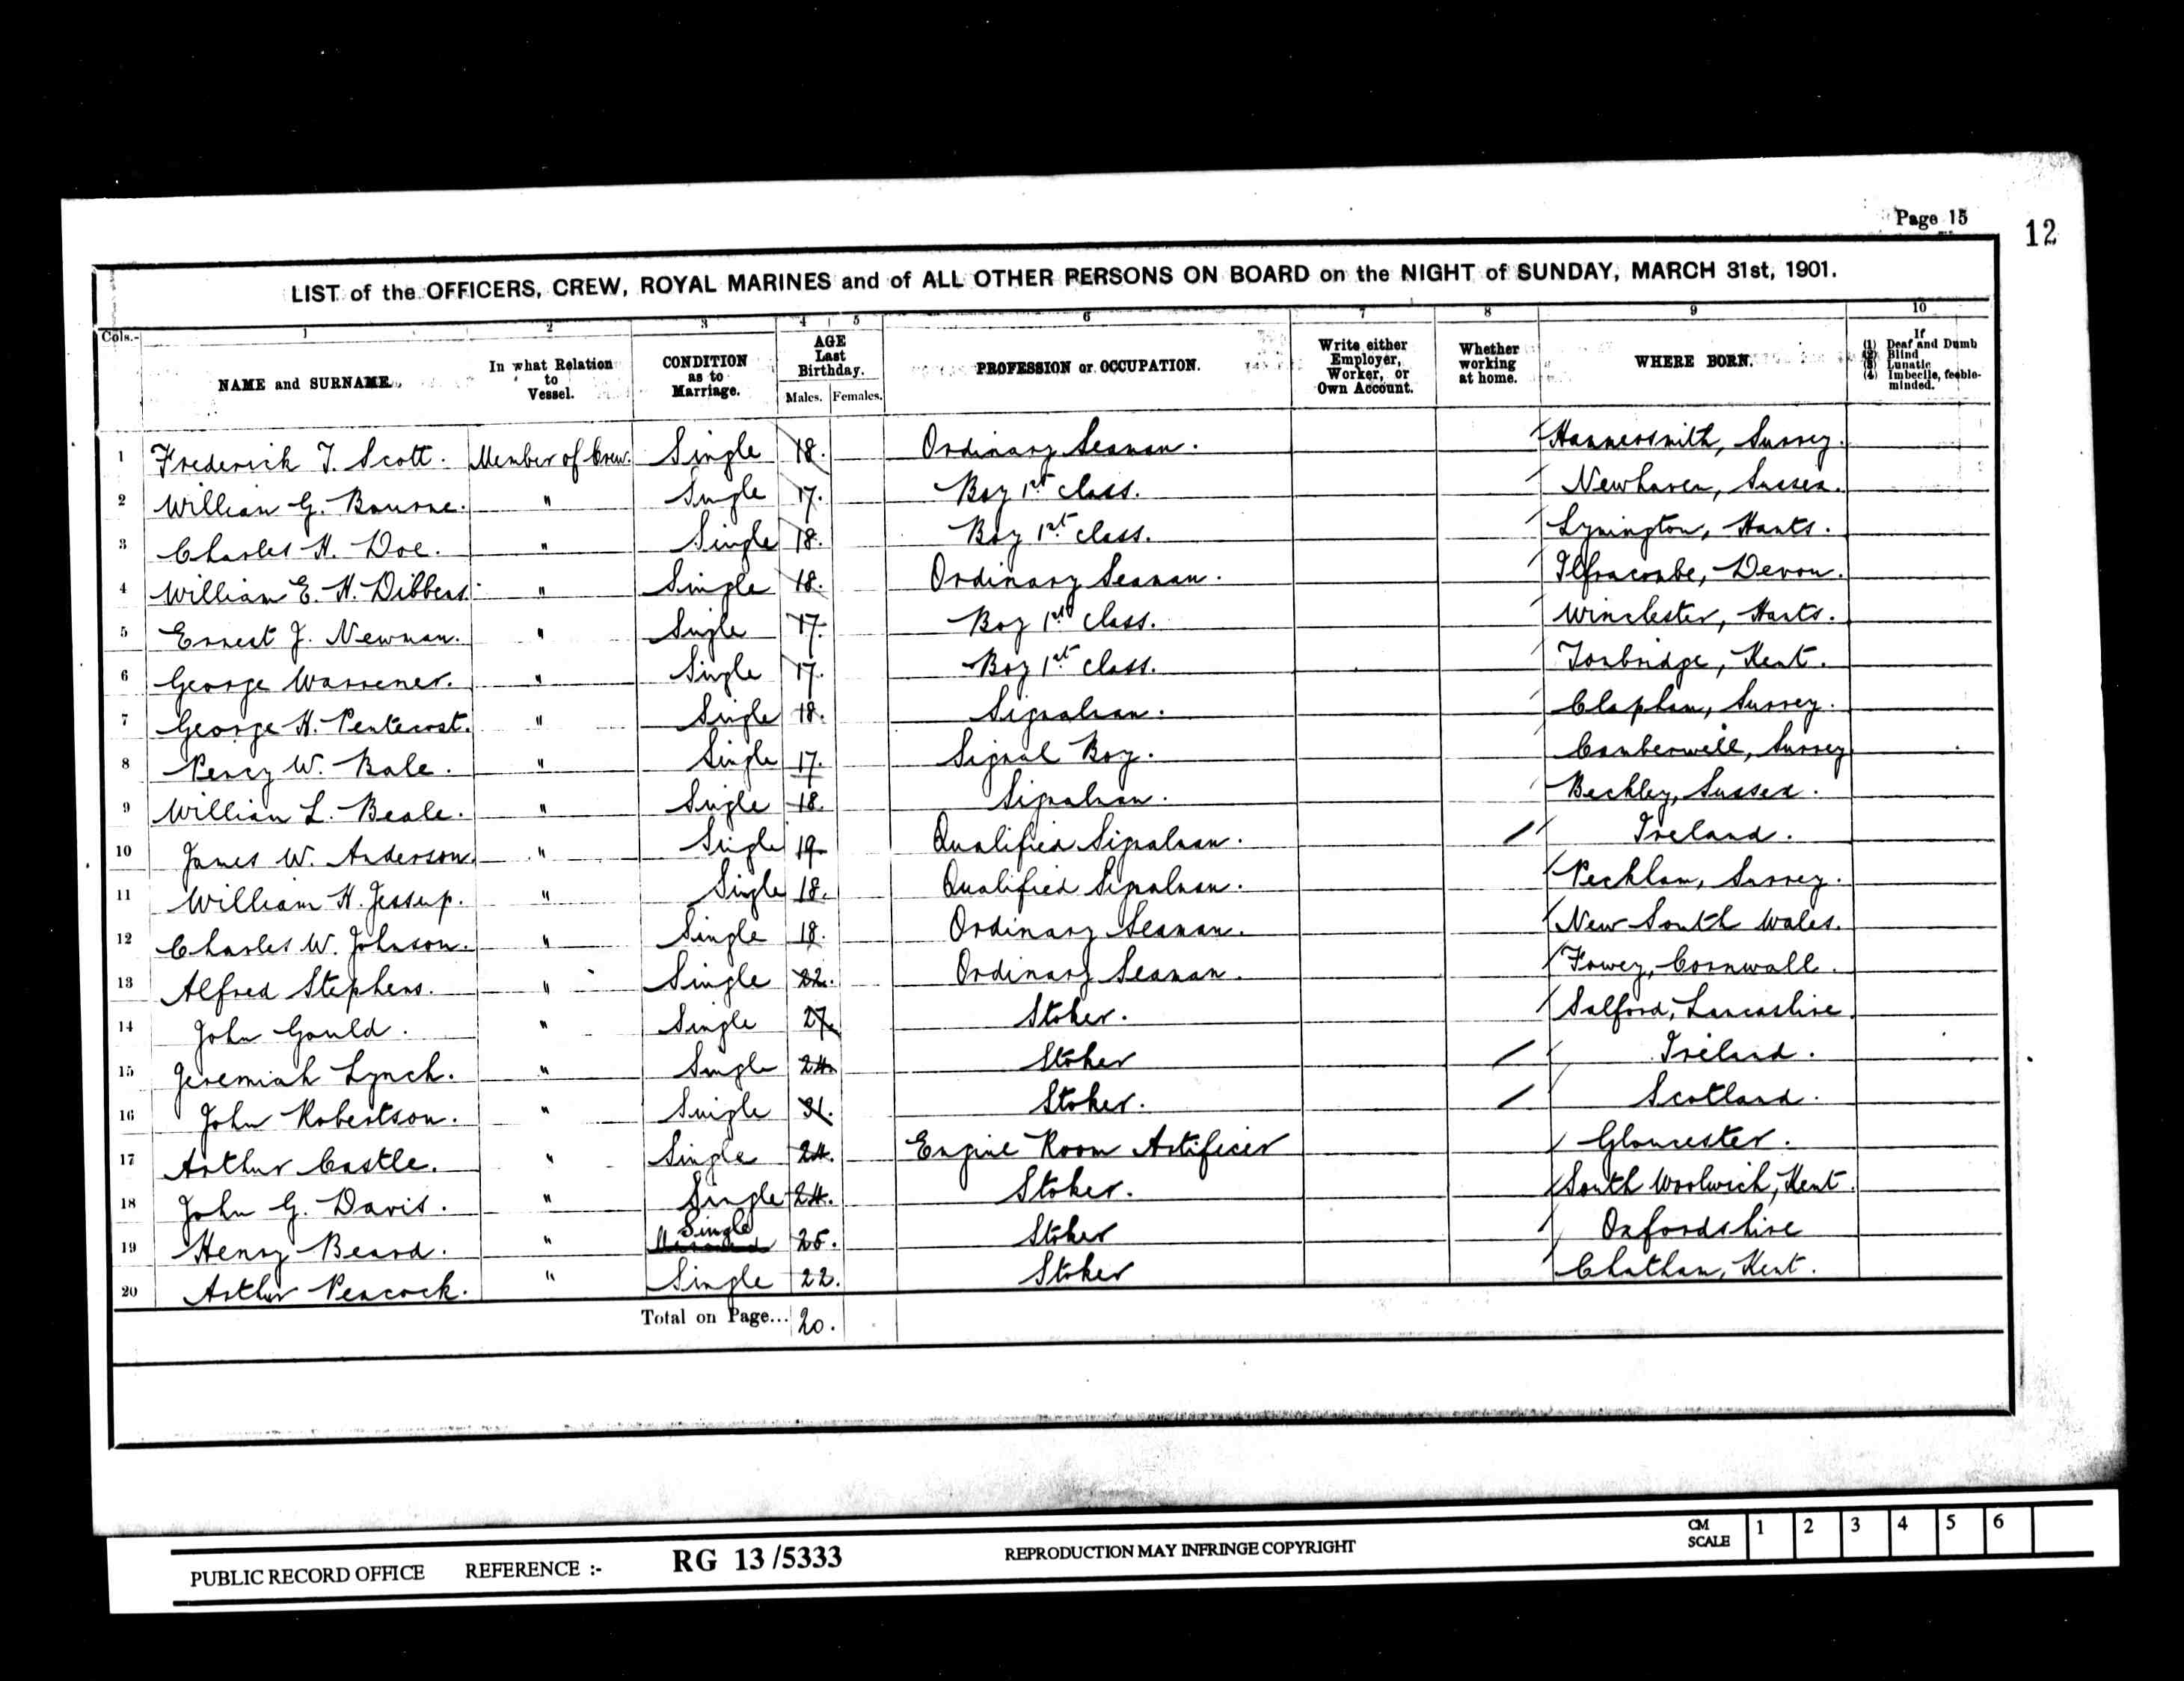 Page 15
12
LIST of the OFFICERS, CREW, ROYAL MARINES and of ALL OTHER PERSONS ON BOARD on the NIGHT of SUNDAY, MARCH 31st, 1901.
Cols.- 1 2 3 4 5 6 7 8 9 10
NAME and SURNAME. In what Relation to Vessel. CONDITION as to Marriage. AGE Last Birthday. Males. Females. PROFESSION or OCCUPATION. Write either Employer, Worker, or Own Account. Whether working at home. WHERE BORN. If (1) Deaf and Dumb (2) Blind (3) Lunatic (4) Imbecile, feeble-minded.
1 Frederick T. Scott. Member of Crew. Single 18. Ordinary Seaman. Hammersmith, Surrey.
2 William G. Bourne. " Single 17. Boy 1st class. Newhaven, Sussex.
3 Charles H. Doe. " Single 18. Boy 1st class. Lymington, Hants.
4 William E. H. Dibbens. " Single 18. Ordinary Seaman. Ilfracombe, Devon.
5 Ernest J. Newman. " Single 17. Boy 1st class. Winchester, Hants.
6 George Warrener. " Single 17. Boy 1st class. Tonbridge, Kent.
7 George H. Pentecost. " Single 18. Signalman. Clapham, Surrey.
8 Percy W. Bale. " Single 17. Signal Boy. Camberwell, Surrey
9 William L. Beale. " Single 18. Signalman. Beckley, Sussex.
10 James W. Anderson. " Single 19 Qualified Signalman. Ireland.
11 William H. Jessup. " Single 18. Qualified Signalman. Peckham, Surrey.
12 Charles W. Johnson. " Single 18. Ordinary Seaman. New South Wales.
13 Alfred Stephens. " Single 22. Ordinary Seaman. Fowey, Cornwall.
14 John Gould. " Single 27. Stoker. Salford, Lancashire.
15 Jeremiah Lynch. " Single 24. Stoker Ireland.
16 John Robertson. " Single 31. Stoker. Scotland.
17 Arthur Castle. " Single 24. Engine Room Artificer Gloucester.
18 John G. Davis. " Single 24. Stoker. South Woolwich, Kent.
19 Henry Beard. " Single 25. Stoker Oxfordshire
20 Arthur Peacock. " Single 22. Stoker Chatham, Kent.
Total on Page... 20.
PUBLIC RECORD OFFICE REFERENCE :- RG 13/5333 REPRODUCTION MAY INFRINGE COPYRIGHT CM SCALE 1 2 3 4 5 6